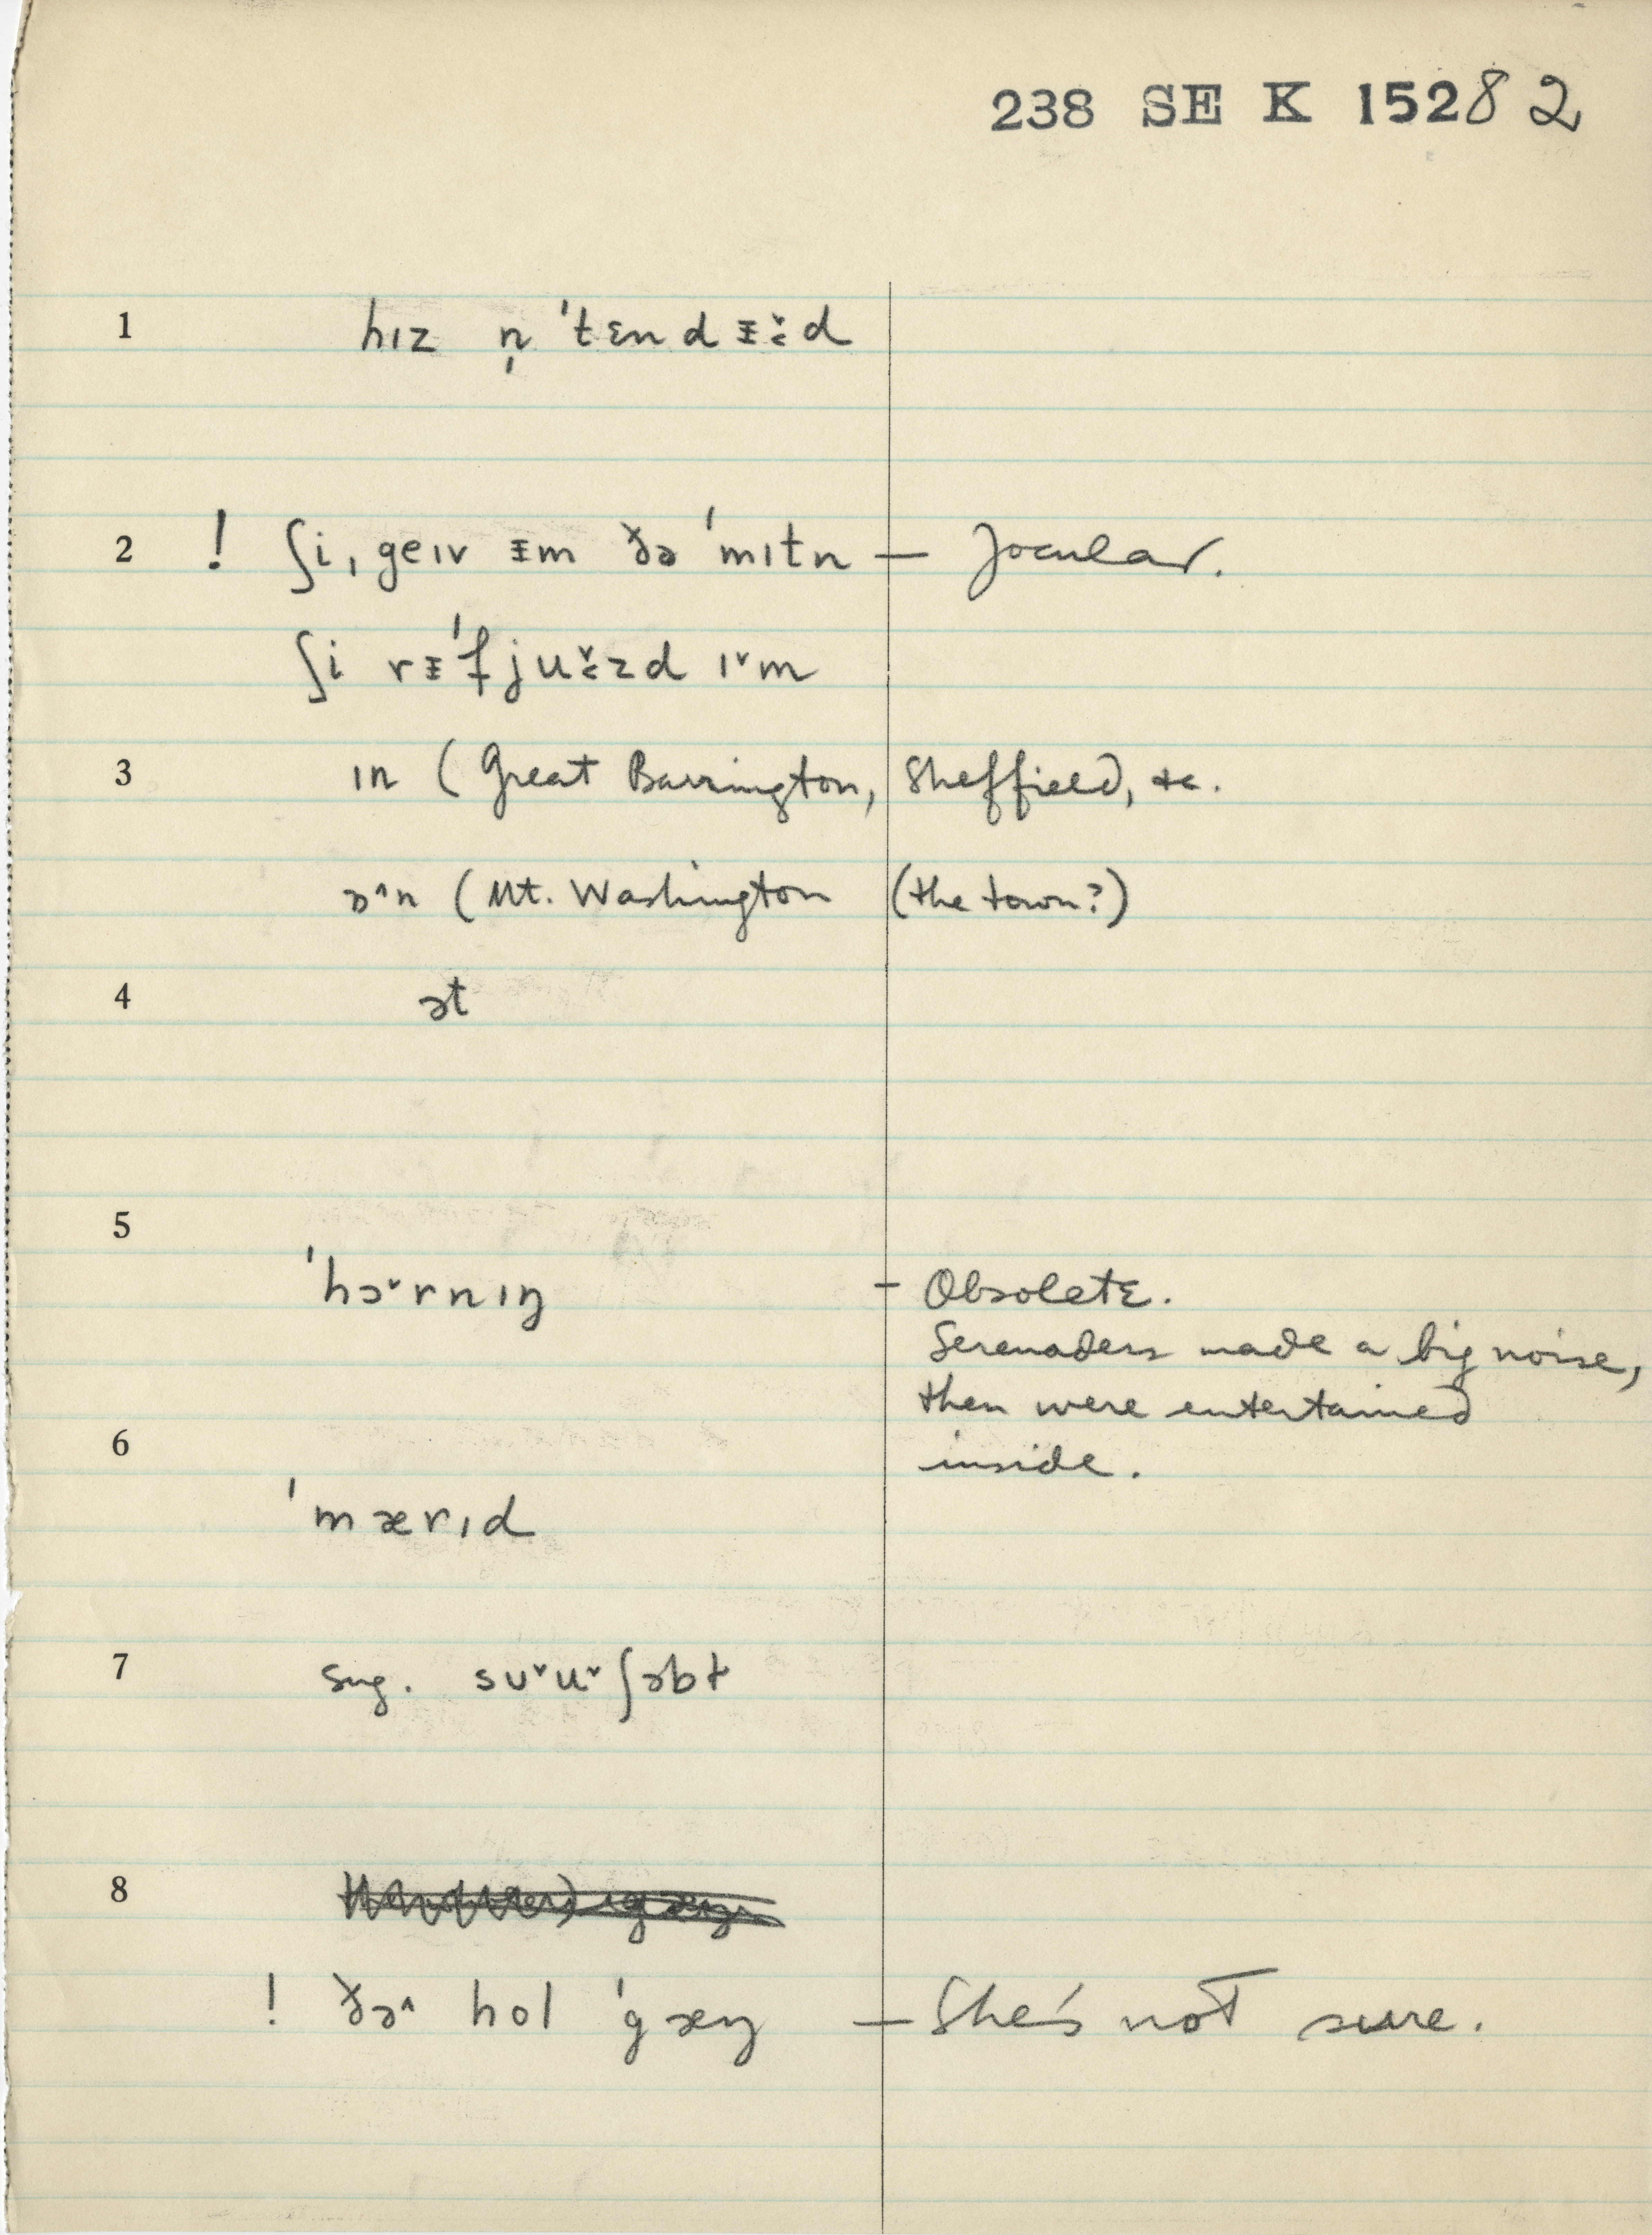 238 SE K 15282
1 hɪz n̩ ˈtɛndɪ̵ˇ̵d
2 ! ʃi ˌgeɪv ɪ̵m ðə ˈmɪtn — Jocular.
ʃi rɪ̵ˈfjuˇzd ɪˇm
3 ɪn (Great Barrington, Sheffield, &c.
ɒ^n (Mt. Washington (the town?)
4 ət
5
ˈhɔˇrnɪŋ – Obsolete.
Serenaders made a big noise,
then were entertained
6 inside.
ˈmærɪd
7 sug. sʊˇuˇʃəbɫ
8
! ðə^ hol ˈgæŋ — She's not sure.